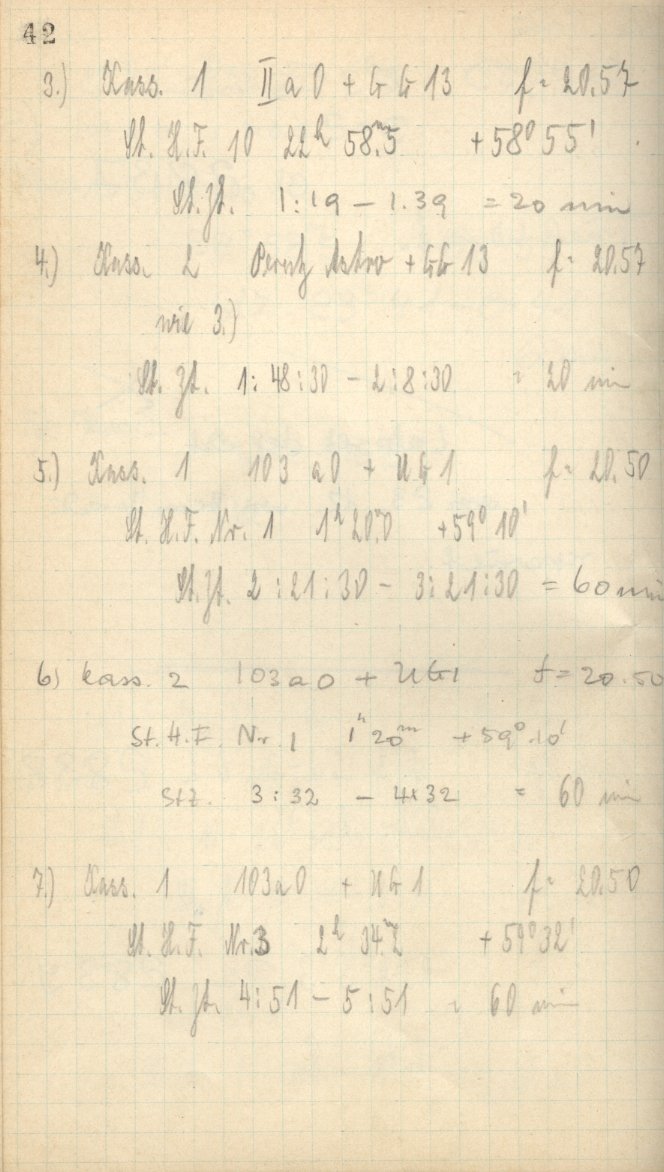 42
3.) Kass. 1 II a O + G G 13 f = 20.57
St. H.F. 10 22h 58m.5 +58° 55'
St. Zt. 1:19 – 1.39 = 20 min
4.) Kass. 2 Perutz Astro + GG 13 f = 20.57
wie 3.)
St. Zt. 1:48:30 – 2:8:30 = 20 min
5.) Kass. 1 103 a O + UG 1 f = 20.50
St. H.F. Nr. 1 1h 20m.0 +59° 10'
St. Zt. 2:21:30 – 3:21:30 = 60 min
6) Kass. 2 103 a O + UG1 f = 20.50
St. H.F. Nr. 1 1h 20m +59° 10'
StZ. 3:32 – 4:32 = 60 min
7.) Kass. 1 103 a O + UG 1 f = 20.50
St. H.F. Nr. 3 2h 34m.2 +59° 32'
St. Zt. 4:51 – 5:51 = 60 min